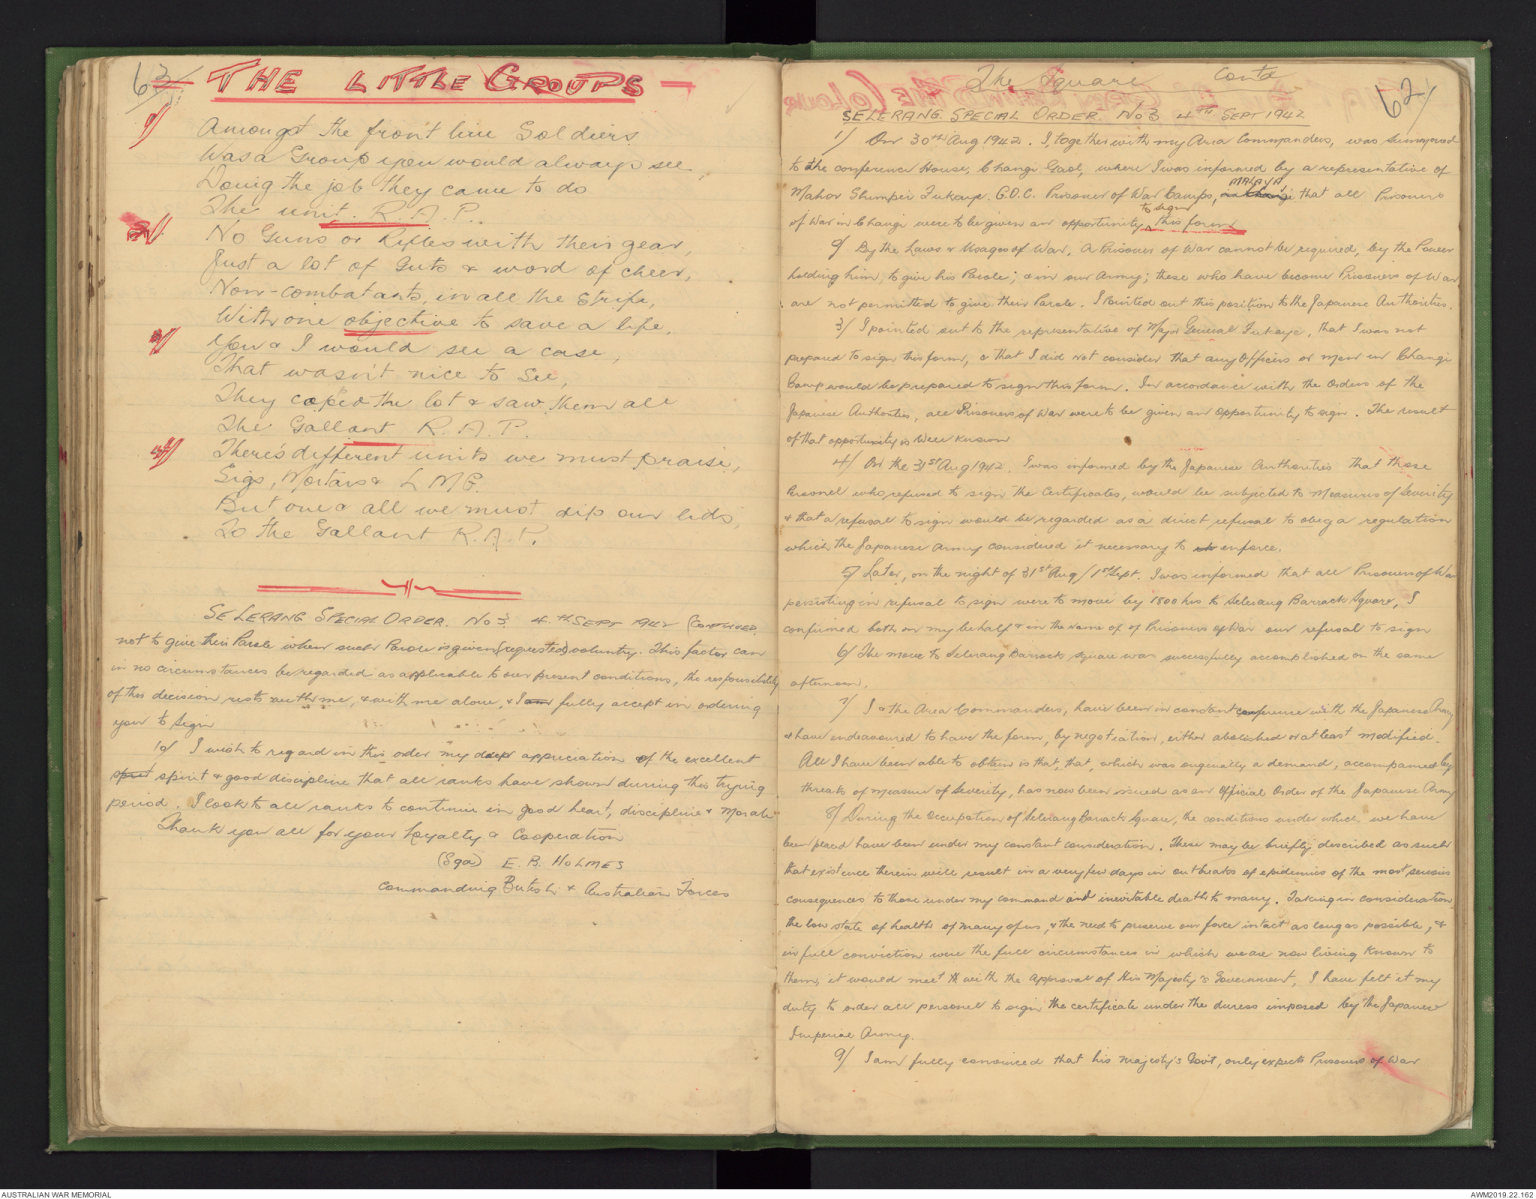 63
THE LITTLE GROUPS
1) Amongst the front line Soldiers
Was a Group you would always see,
Doing the job they came to do
The unit. R.A.P..
2) No Guns or Rifles with their gear,
Just a lot of Guts & word of cheer,
Non-combatants, in all the strife,
With one objective to save a life.
3) You & I would see a case,
That wasn't nice to see,
They coped the lot & saw them all
The Gallant R.A.P.
4) There's different units we must praise,
Sigs, Mortars & L M G.
But one & all we must dip our lids,
To the Gallant R.A.P.
SELERANG SPECIAL ORDER. No 3 4TH SEPT 1942 (CONTINUED.
not to give their Parole when such Parole is given (requested) volunty. This factor can
in no circumstances be regarded as applicable to our present conditions, the responsibility
of this decision rests with me, & with me alone, & I fully accept in ordering
you to sign
10) I wish to regard in this order my deep appreciation of the excellent
spirit & good discipline that all ranks have shown during this trying
period. I look to all ranks to continue in good heart, discipline & Morale
Thank you all for your loyalty & Cooperation
(Sgd) E. B. HOLMES
Commanding British & Australian Forces
The Square Contd
62
SELERANG SPECIAL ORDER No 3 4TH SEPT 1942
1) On 30th Aug 1942. I, together with my Area Commanders, was summoned
to the conference House, Changi Gaol, where I was informed by a representative of
Mahor Shimpei Fukaye. G.O.C. Prisoner of War Camps, MALAYA that all Prisoners
of War in Changi were to be given an opportunity to sign this form
2) By the Laws & Usages of War, a Prisoner of War cannot be required, by the Power
holding him, to give his Parole; & in our Army; those who have become Prisoners of War
are not permitted to give their Parole. I Pointed out this position to the Japanese Authorities.
3) I pointed out to the representative of Major General Fukaye, that I was not
prepared to sign this form, & that I did not consider that any Officers or men in Changi
Camp would be prepared to sign this form. In accordance with the Orders of the
Japanese Authorities, all Prisoners of War were to be given an opportunity to sign. The result
of that opportunity is Well known
4) On the 31st Aug 1942. I was informed by the Japanese Authorities that those
Personel who refused to sign the Certificates, would be subjected to Measures of Severity
& that a refusal to sign would be regarded as a direct refusal to obey a regulation
which the Japanese army considered it necessary to enforce.
5) Later, on the night of 31st Aug/1st Sept. I was informed that all Prisoners of War
persisting in refusal to sign were to move by 1800 hrs to Selerang Barrack Square, I
confirmed both on my behalf & in the name of of Prisoners of War our refusal to sign
6) The move to Selerang Barrack Square was successfully accomplished on the same
afternoon.
7) I & the Area Commanders, have been in constant conference with the Japanese Army
& have endeavoured to have the form, by negotiation, either abolished or at least modified.
All I have been able to obtain is that, that, which was originally a demand, accompanied by
threats of measure of Severity, has now been issued as an Official Order of the Japanese Army
8) During the Occupation of Selerang Barrack Square, the conditions under which we have
been placed have been under my constant consideration. These may be briefly described as such
that existence therein will result in a very few days in outbreaks of epidemics of the most serious
consequences to those under my command and inevitable death to many. Taking in consideration,
the low state of health of many of us, & the need to preserve our force intact as long as possible, &
in full conviction were the full circumstances in which we are now living known to
them, it would meet with the approval of His Majesty's Government, I have felt it my
duty to order all personel to sign the certificate under the duress imposed by the Japanese
Imperial Army.
9) I am fully convinced that his majesty's Gov't, only expects Prisoners of War
AUSTRALIAN WAR MEMORIAL
AWM2019.22.162